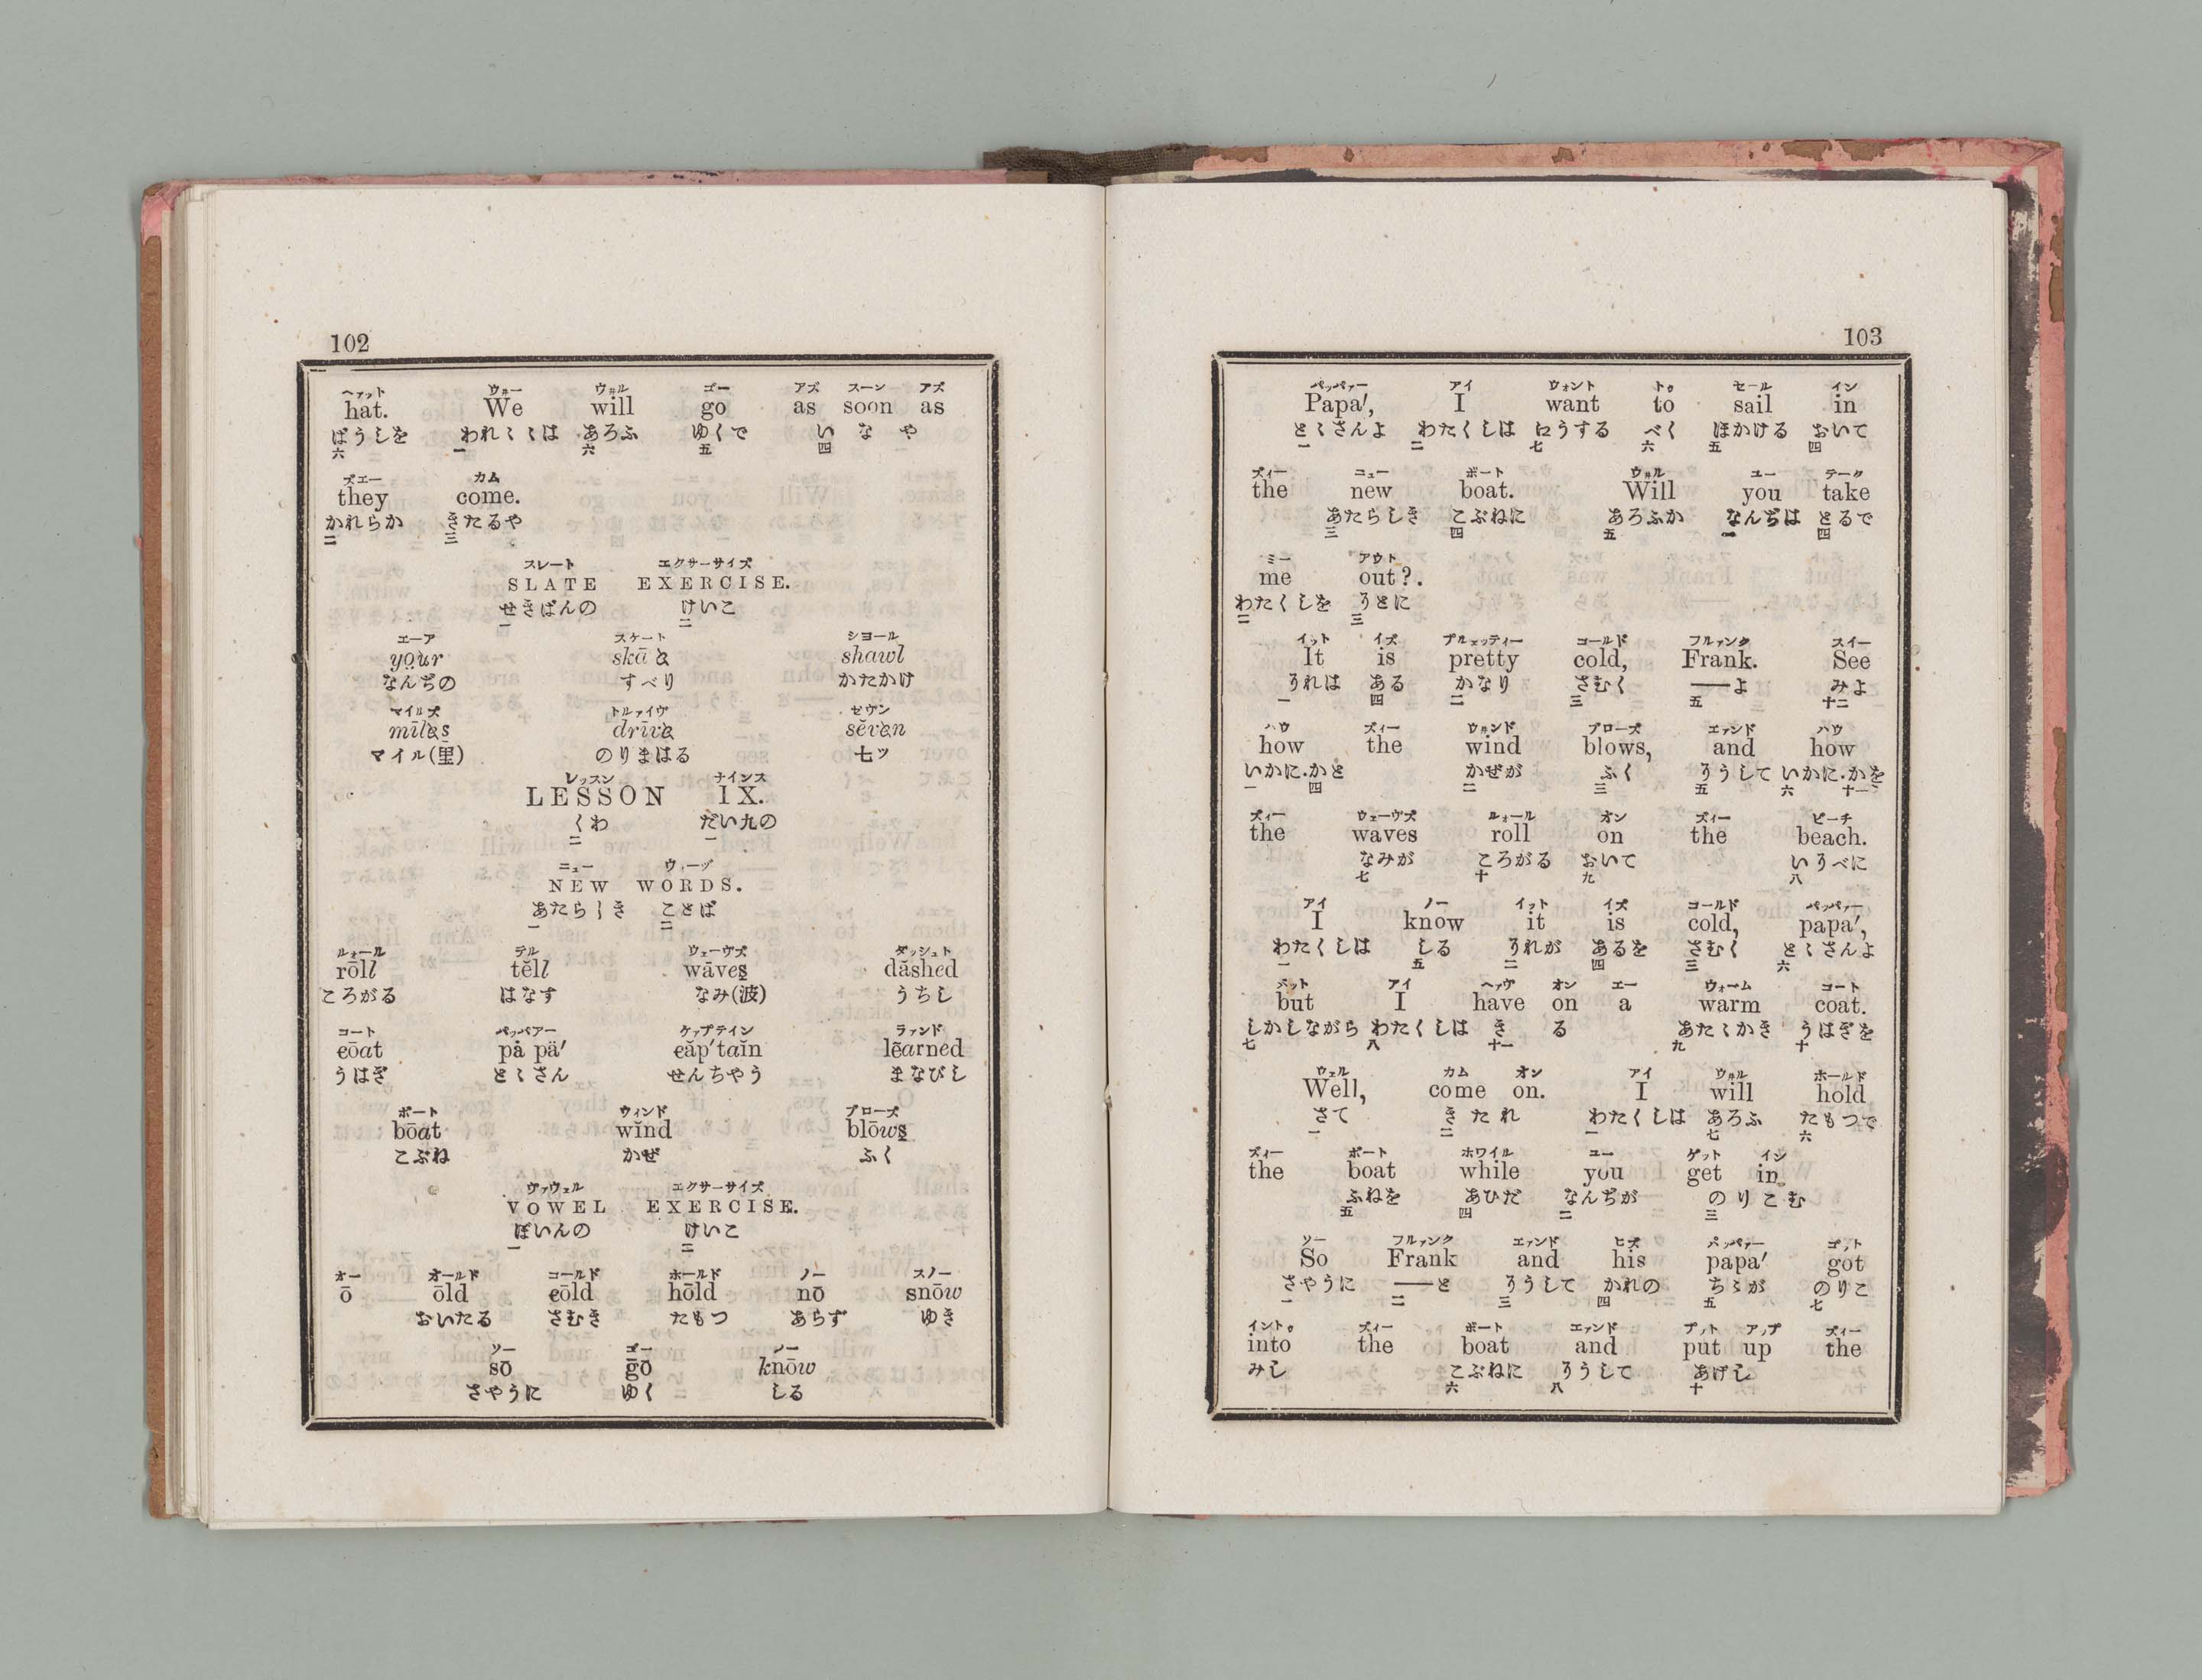 102
ヘァット ウ井ー ウ井ル ゴー アズ スーン アズ
hat. We will go as soon as
ばうしを われ〻〻は あろふ ゆくで い な や
六 一 六 五 四
ズエー カム
they come.
かれらか きたるや
二 三
スレート エクサーサイズ
SLATE EXERCISE.
せきばんの けいこ
一 二
エーア スケート シヨール
your skāte shawl
なんぢの すべり かたかけ
マイルズ トルァイヴ セヴン
mīles drīve sĕven
マイル(里) のりまはる 七ツ
レッスン ナインス
LESSON IX.
くわ だい九の
二 一
ニュー ウォーヅ
NEW WORDS.
あたらしき ことば
一 二
ルォール テル ウェーヴズ ダッシュト
rōll tĕll wāves dăshed
ころがる はなす なみ(波) うちし
コート パッパアー ケァプテイン ラァンド
cōat pȧ pä′ căp′taĭn lẽarned
うはぎ とゝさん せんちやう まなびし
ボート ウィンド ブローズ
bōat wĭnd blōws
こぶね かぜ ふく
ヴァウェル エクサーサイズ
VOWEL EXERCISE.
ぼいんの けいこ
一 二
オー オールド コールド ホールド ノー スノー
ō ōld cōld hōld nō snōw
おいたる さむき たもつ あらず ゆき
ソー ゴー ノー
sō gō knōw
さやうに ゆく しる
103
パッパァー アイ ウォント トゥ セール イン
Papa′, I want to sail in
とゝさんよ わたくしは ロうする べく ほかける おいて
一 二 七 六 五 四
ズィー ニュー ボート ウ井ル ユー テーク
the new boat. Will you take
あたらしき こぶねに あろふか なんぢは とるで
三 四 五 一 四
ミー アウト
me out?.
わたくしを そとに
二 三
イット イズ プルェッティー コールド フルァンク スイー
It is pretty cold, Frank. See
それは ある かなり さむく ──よ みよ
一 四 二 三 五 十二
ハウ ズィー ウ井ンド ブローズ エァンド ハウ
how the wind blows, and how
いかに.かと かぜが ふく そうして いかに.かを
一 四 二 三 五 六 十一
ズィー ウェーヴズ ルォール オン ズィー ビーチ
the waves roll on the beach.
なみが ころがる おいて いそべに
七 十 九 八
アイ ノー イット イズ コールド パッパァー
I know it is cold, papa′,
わたくしは しる それが あるを さむく とゝさんよ
一 五 二 四 三 六
バット アイ ヘァヴ オン エー ウォーム コート
but I have on a warm coat.
しかしながら わたくしは き る あたゝかき うはぎを
七 八 十一 九 十
ウェル カム オン アイ ウ井ル ホールド
Well, come on. I will hold
さて き た れ わたくしは あろふ たもつで
一 二 一 七 六
ズィー ボート ホワイル ユー ゲット イン
the boat while you get in
ふねを あひだ なんぢが の り こ む
五 四 二 三
ソー フルァンク エァンド ヒズ パッパァー ゴット
So Frank and his papa′ got
さやうに ──と そうして かれの ちゝが のりこ
一 二 三 四 五 七
イントゥ ズィー ボート エァンド プット アップ ズィー
into the boat and put up the
みし こぶねに そうして あげし
六 八 十